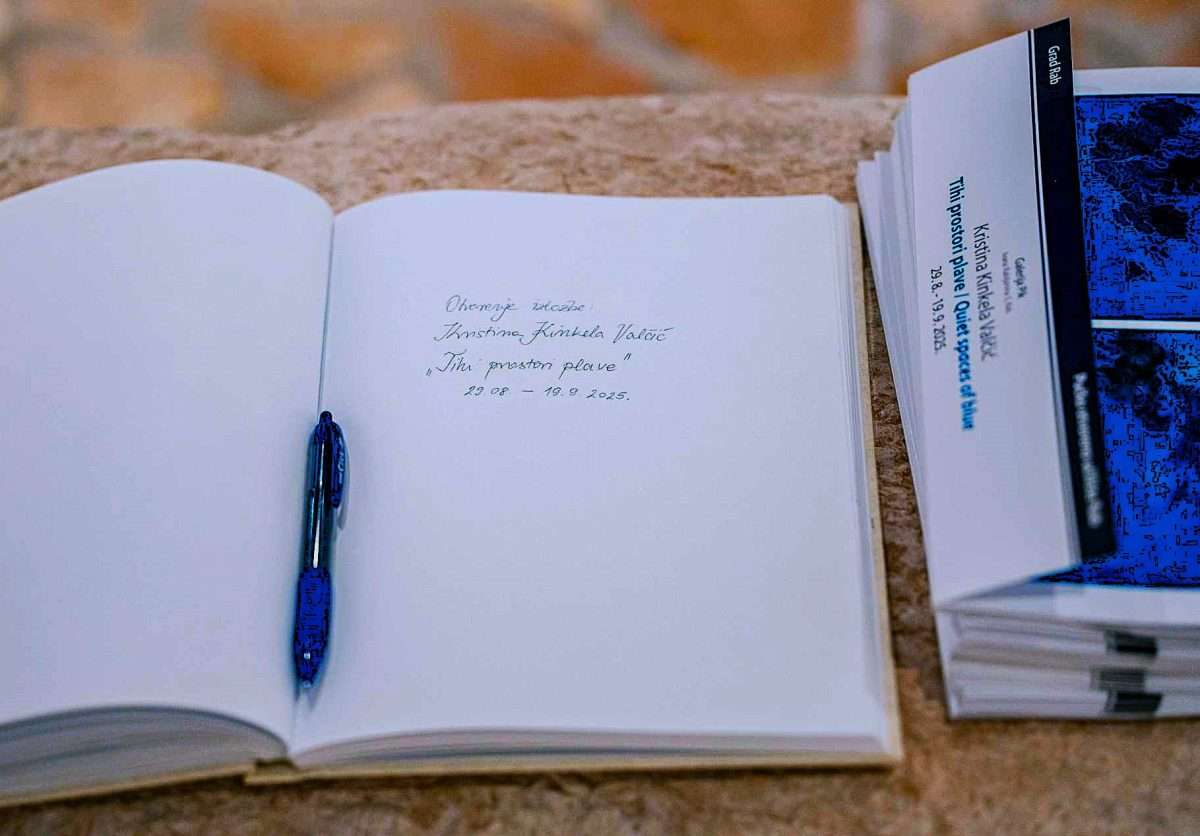 Otvorenje izložbe:
Kristina Kinkela Valčić
„Tihi prostori plave"
29.08. — 19.9.2025.
Grad Rab
Galerija PIK
Kristina Kinkela Valčić
Tihi prostori plave | Quiet spaces of blue
29.8.-19.9.2025.